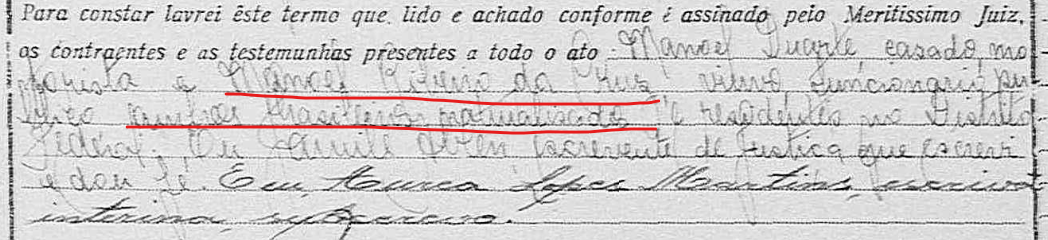 Para constar lavrei êste termo que, lido e achado conforme é assinado pelo Meritissimo Juiz,
os contraentes e as testemunhas presentes a todo o ato Manoel Duarte casado, mo
torista e Manoel da Cruz viuvo, funcionario pu
blico ambos brasileiros naturalisados e residentes no Distrito
Federal. Eu escrevente de Justiça que escrevi
e dou fe. Eu, Aurea Lopes Martins, escrivã
interina, subscrevo.